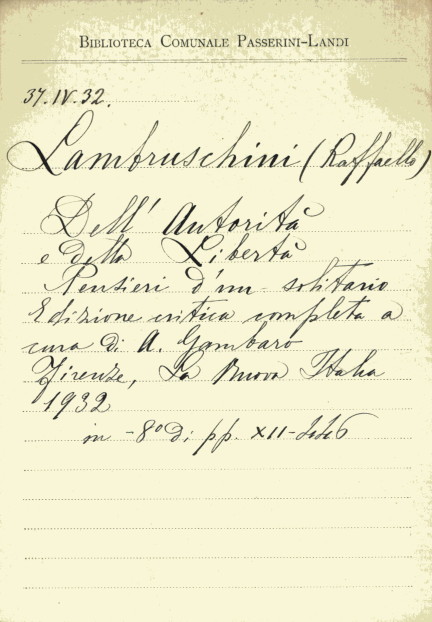 BIBLIOTECA COMUNALE PASSERINI-LANDI
37.IV.32.
Lambruschini (Raffaello)
Dell' Autorità
e della Libertà
Pensieri d'un solitario
Edizione critica completa a
cura di A. Gambaro
Firenze, La Nuova Italia
1932
in -8° di pp. XII-